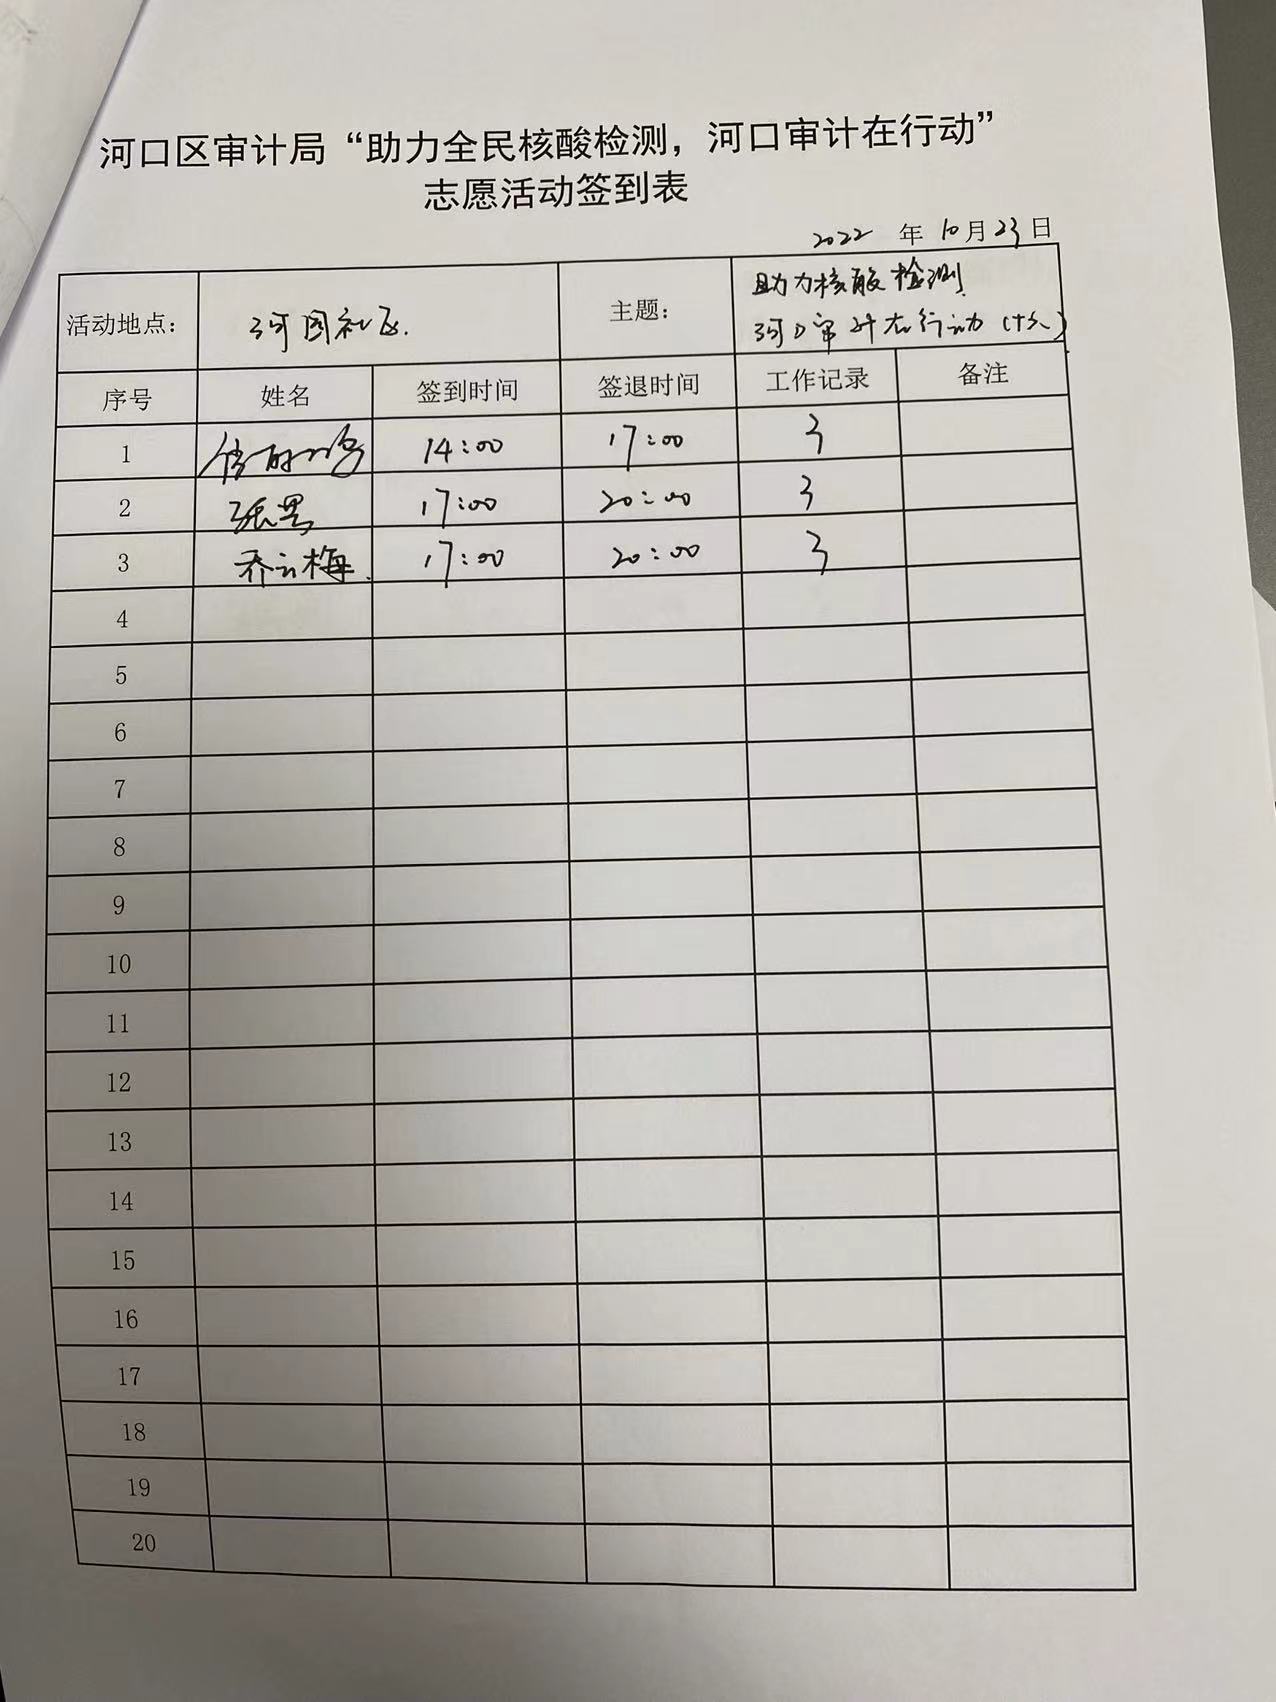 河口区审计局“助力全民核酸检测，河口审计在行动”
志愿活动签到表
2022 年 10 月 23 日
活动地点： 河园社区. 主题： 助力核酸检测
河口审计在行动（十八）
序号 姓名 签到时间 签退时间 工作记录 备注
1 14:00 17:00 3
2 17:00 20:00 3
3 乔云梅 17:00 20:00 3
4
5
6
7
8
9
10
11
12
13
14
15
16
17
18
19
20